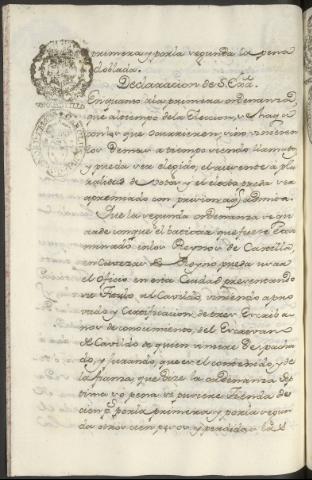 primera y por la segunda la pena
doblada.
Declaracion de S. Exã.
En quanto a la primera ordenanza,
que al tiempo de la Eleccion, se haga
con los que ocurrieren, sino vinieren
los demas a tiempo siendo llamados
y pueda ser elegido, el ausente a plu-
ralidad de votos y el electo pueda ser
apremiado con prision a q admita.
Que la segunda ordenanza se en-
tienda con que el que fuere Exa-
minado en los Reynos de Castilla,
en Cavezas de Reyno pueda usar
el Oficio en esta Ciudad presentando
su Titulo, al Cavildo, viniendo apro-
vado y Certificacion de tres Escriba-
nos de conocimiento, del Escrivano
de Cavildo de quien viniere despacha-
do, y jurando, que es el contenido, y de
la fianza, que dize la ordenanza sep-
tima so pena si pusiere Tienda de
cien p.s por la primera y por la segun-
da otros cien pesos y perdidas las